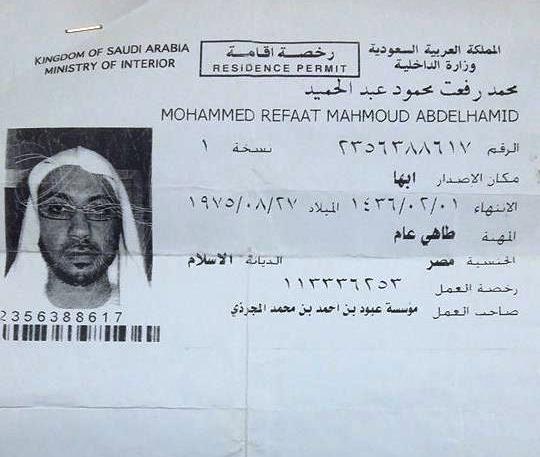 KINGDOM OF SAUDI ARABIA
MINISTRY OF INTERIOR
رخصة اقامة
RESIDENCE PERMIT
المملكة العربية السعودية
وزارة الداخلية
محمد رفعت محمود عبد الحميد
MOHAMMED REFAAT MAHMOUD ABDELHAMID
الرقم ٢٣٥٦٣٨٨٦١٧ نسخة ١
مكان الاصدار ابها
الانتهاء ١٤٣٦/٠٢/٠١ الميلاد ١٩٧٥/٠٨/٢٧
المهنة طاهي عام
الجنسية مصر الديانة الاسلام
رخصة العمل ١١٣٣٣٦٢٥٣
صاحب العمل مؤسسة عبود بن احمد بن محمد المجرذي
2356388617